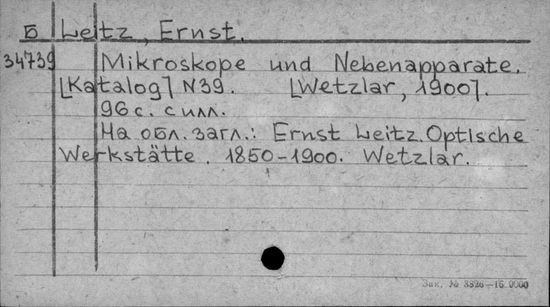 Б Leitz, Ernst.
34739 Mikroskope und Nebenapparate.
[Katalog] N39. [Wetzlar, 1900].
96 с. с илл.
На обл. загл.: Ernst Leitz. Optische
Werkstätte. 1850-1900. Wetzlar.
Зак. №